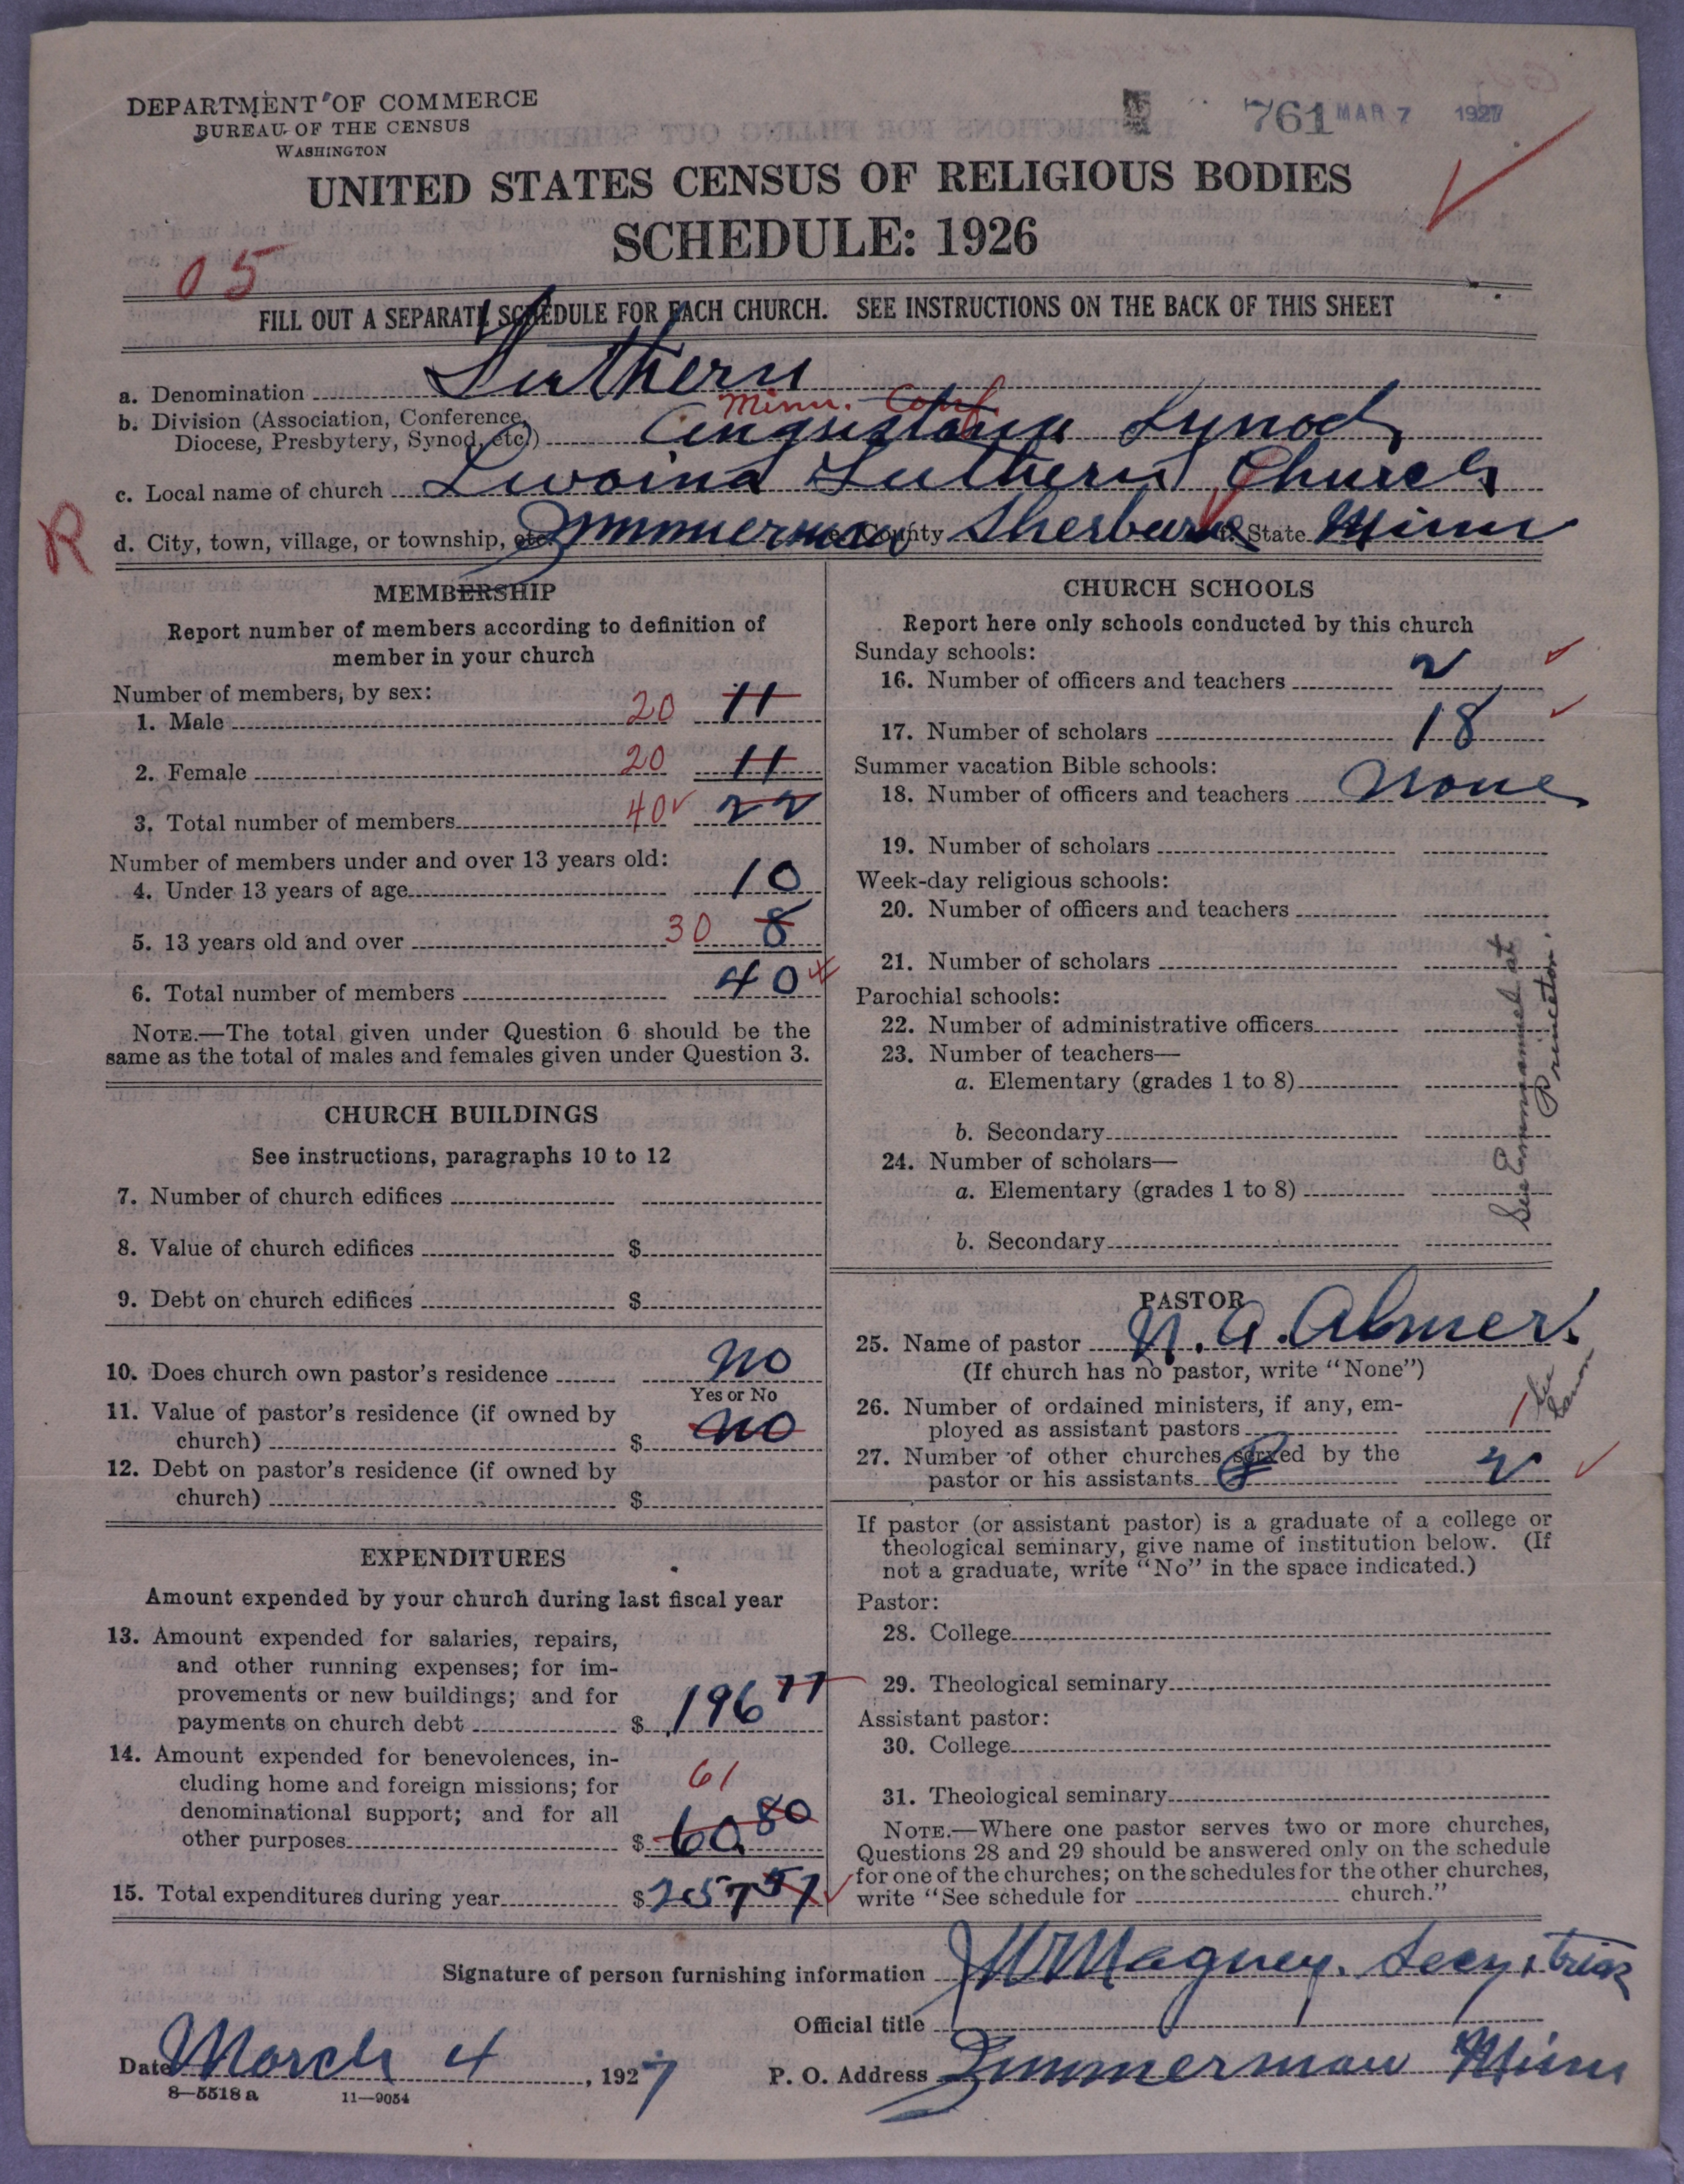 DEPARTMENT OF COMMERCE
BUREAU OF THE CENSUS
WASHINGTON
761 MAR 7 1927
UNITED STATES CENSUS OF RELIGIOUS BODIES
SCHEDULE: 1926
05
FILL OUT A SEPARATE SCHEDULE FOR EACH CHURCH. SEE INSTRUCTIONS ON THE BACK OF THIS SHEET
a. Denomination Luthern
Minn. Conf.
b. Division (Association, Conference,
Diocese, Presbytery, Synod, etc.) Augustana Synod
c. Local name of church Livonia Luthern Church
R
d. City, town, village, or township, etc. Zimmerman County Sherburne State Minn
MEMBERSHIP
Report number of members according to definition of
member in your church
Number of members, by sex:
1. Male 20 11
2. Female 20 11
3. Total number of members 40 22
Number of members under and over 13 years old:
4. Under 13 years of age 10
5. 13 years old and over 30 8
6. Total number of members 40
NOTE.—The total given under Question 6 should be the
same as the total of males and females given under Question 3.
CHURCH BUILDINGS
See instructions, paragraphs 10 to 12
7. Number of church edifices
8. Value of church edifices $
9. Debt on church edifices $
10. Does church own pastor's residence no
Yes or No
11. Value of pastor's residence (if owned by
church) $ no
12. Debt on pastor's residence (if owned by
church) $
EXPENDITURES
Amount expended by your church during last fiscal year
13. Amount expended for salaries, repairs,
and other running expenses; for im-
provements or new buildings; and for
payments on church debt $ 196 77
14. Amount expended for benevolences, in-
cluding home and foreign missions; for 61
denominational support; and for all
other purposes $ 60 80
15. Total expenditures during year $ 257 57
CHURCH SCHOOLS
Report here only schools conducted by this church
Sunday schools:
16. Number of officers and teachers 2
17. Number of scholars 18
Summer vacation Bible schools:
18. Number of officers and teachers None
19. Number of scholars
Week-day religious schools:
20. Number of officers and teachers
21. Number of scholars
Parochial schools:
22. Number of administrative officers
23. Number of teachers—
a. Elementary (grades 1 to 8)
b. Secondary
24. Number of scholars—
a. Elementary (grades 1 to 8)
b. Secondary
See Emmanuel at
Princeton.
PASTOR
25. Name of pastor N. A. Almer.
(If church has no pastor, write "None")
26. Number of ordained ministers, if any, em-
ployed as assistant pastors 1
27. Number of other churches served by the
pastor or his assistants 2
If pastor (or assistant pastor) is a graduate of a college or
theological seminary, give name of institution below. (If
not a graduate, write "No" in the space indicated.)
Pastor:
28. College
29. Theological seminary
Assistant pastor:
30. College
31. Theological seminary
NOTE.—Where one pastor serves two or more churches,
Questions 28 and 29 should be answered only on the schedule
for one of the churches; on the schedules for the other churches,
write "See schedule for church."
Signature of person furnishing information Magney. Secy + treas
Official title
Date March 4, 1927
P. O. Address Zimmerman Minn
8—5518 a 11—9054